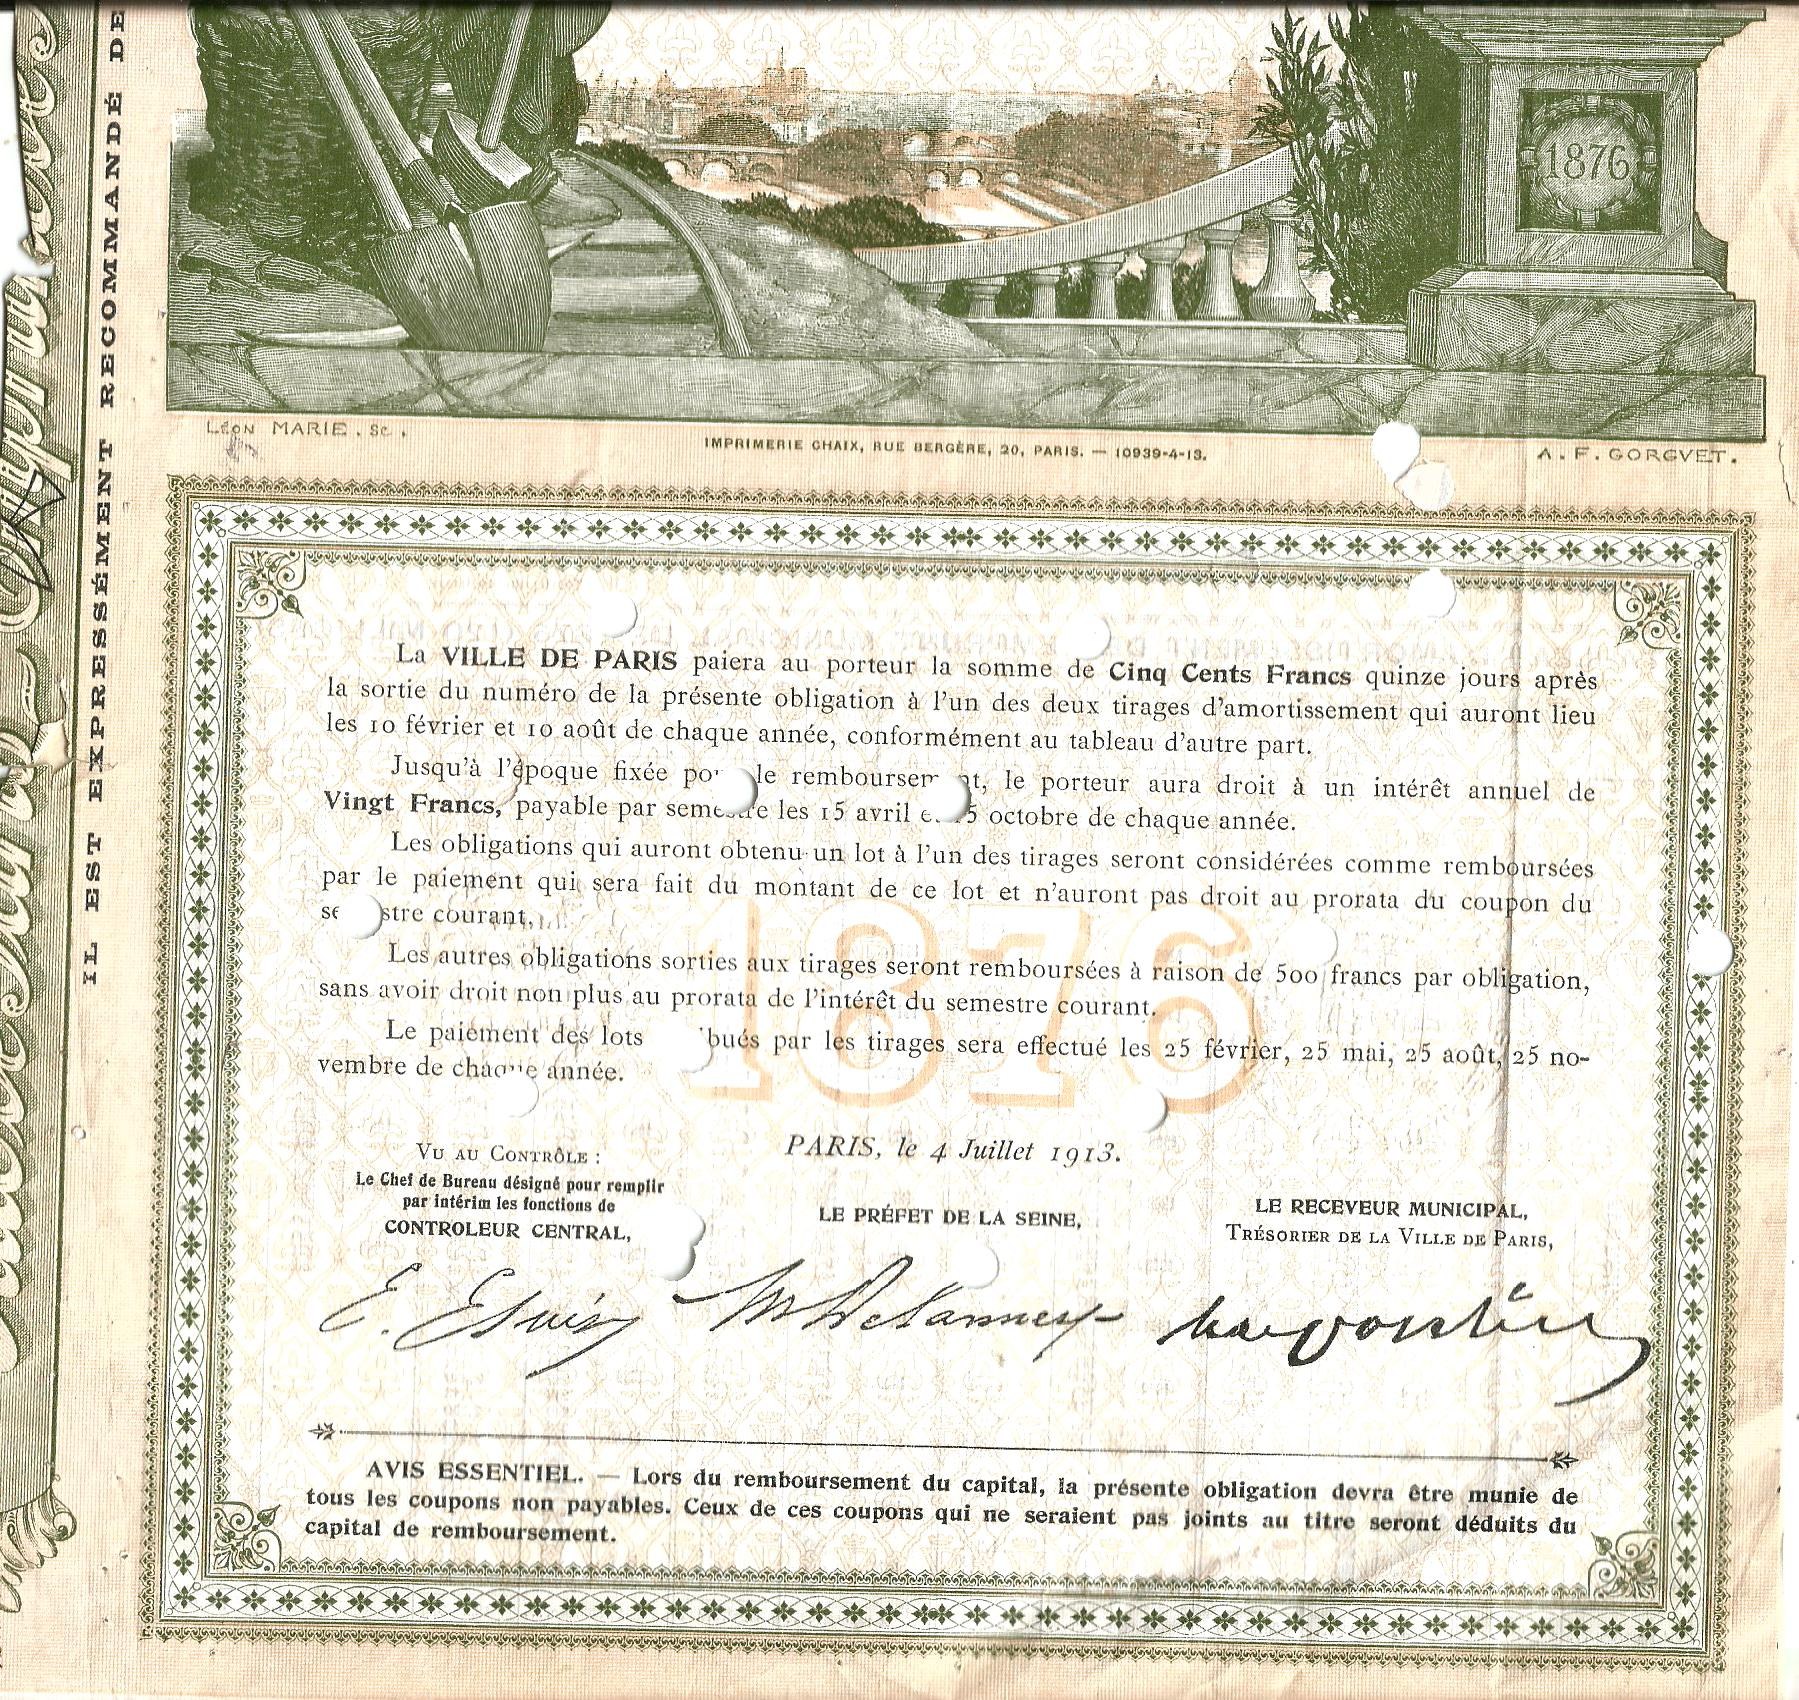 IL EST EXPRESSÉMENT RECOMMANDÉ DE
1876
LÉON MARIE. SC.
IMPRIMERIE CHAIX, RUE BERGÈRE, 20, PARIS. — 10939-4-13.
A. F. GORGVET.
La VILLE DE PARIS paiera au porteur la somme de Cinq Cents Francs quinze jours après
la sortie du numéro de la présente obligation à l'un des deux tirages d'amortissement qui auront lieu
les 10 février et 10 août de chaque année, conformément au tableau d'autre part.
Jusqu'à l'époque fixée pour le remboursement, le porteur aura droit à un intérêt annuel de
Vingt Francs, payable par semestre les 15 avril et 15 octobre de chaque année.
Les obligations qui auront obtenu un lot à l'un des tirages seront considérées comme remboursées
par le paiement qui sera fait du montant de ce lot et n'auront pas droit au prorata du coupon du
semestre courant.
Les autres obligations sorties aux tirages seront remboursées à raison de 500 francs par obligation,
sans avoir droit non plus au prorata de l'intérêt du semestre courant.
Le paiement des lots bués par les tirages sera effectué les 25 février, 25 mai, 25 août, 25 no-
vembre de chaque année.
1876
PARIS, le 4 Juillet 1913.
VU AU CONTRÔLE :
Le Chef de Bureau désigné pour remplir
par intérim les fonctions de
CONTROLEUR CENTRAL,
LE PRÉFET DE LA SEINE,
LE RECEVEUR MUNICIPAL,
TRÉSORIER DE LA VILLE DE PARIS,
AVIS ESSENTIEL. — Lors du remboursement du capital, la présente obligation devra être munie de
tous les coupons non payables. Ceux de ces coupons qui ne seraient pas joints au titre seront déduits du
capital de remboursement.